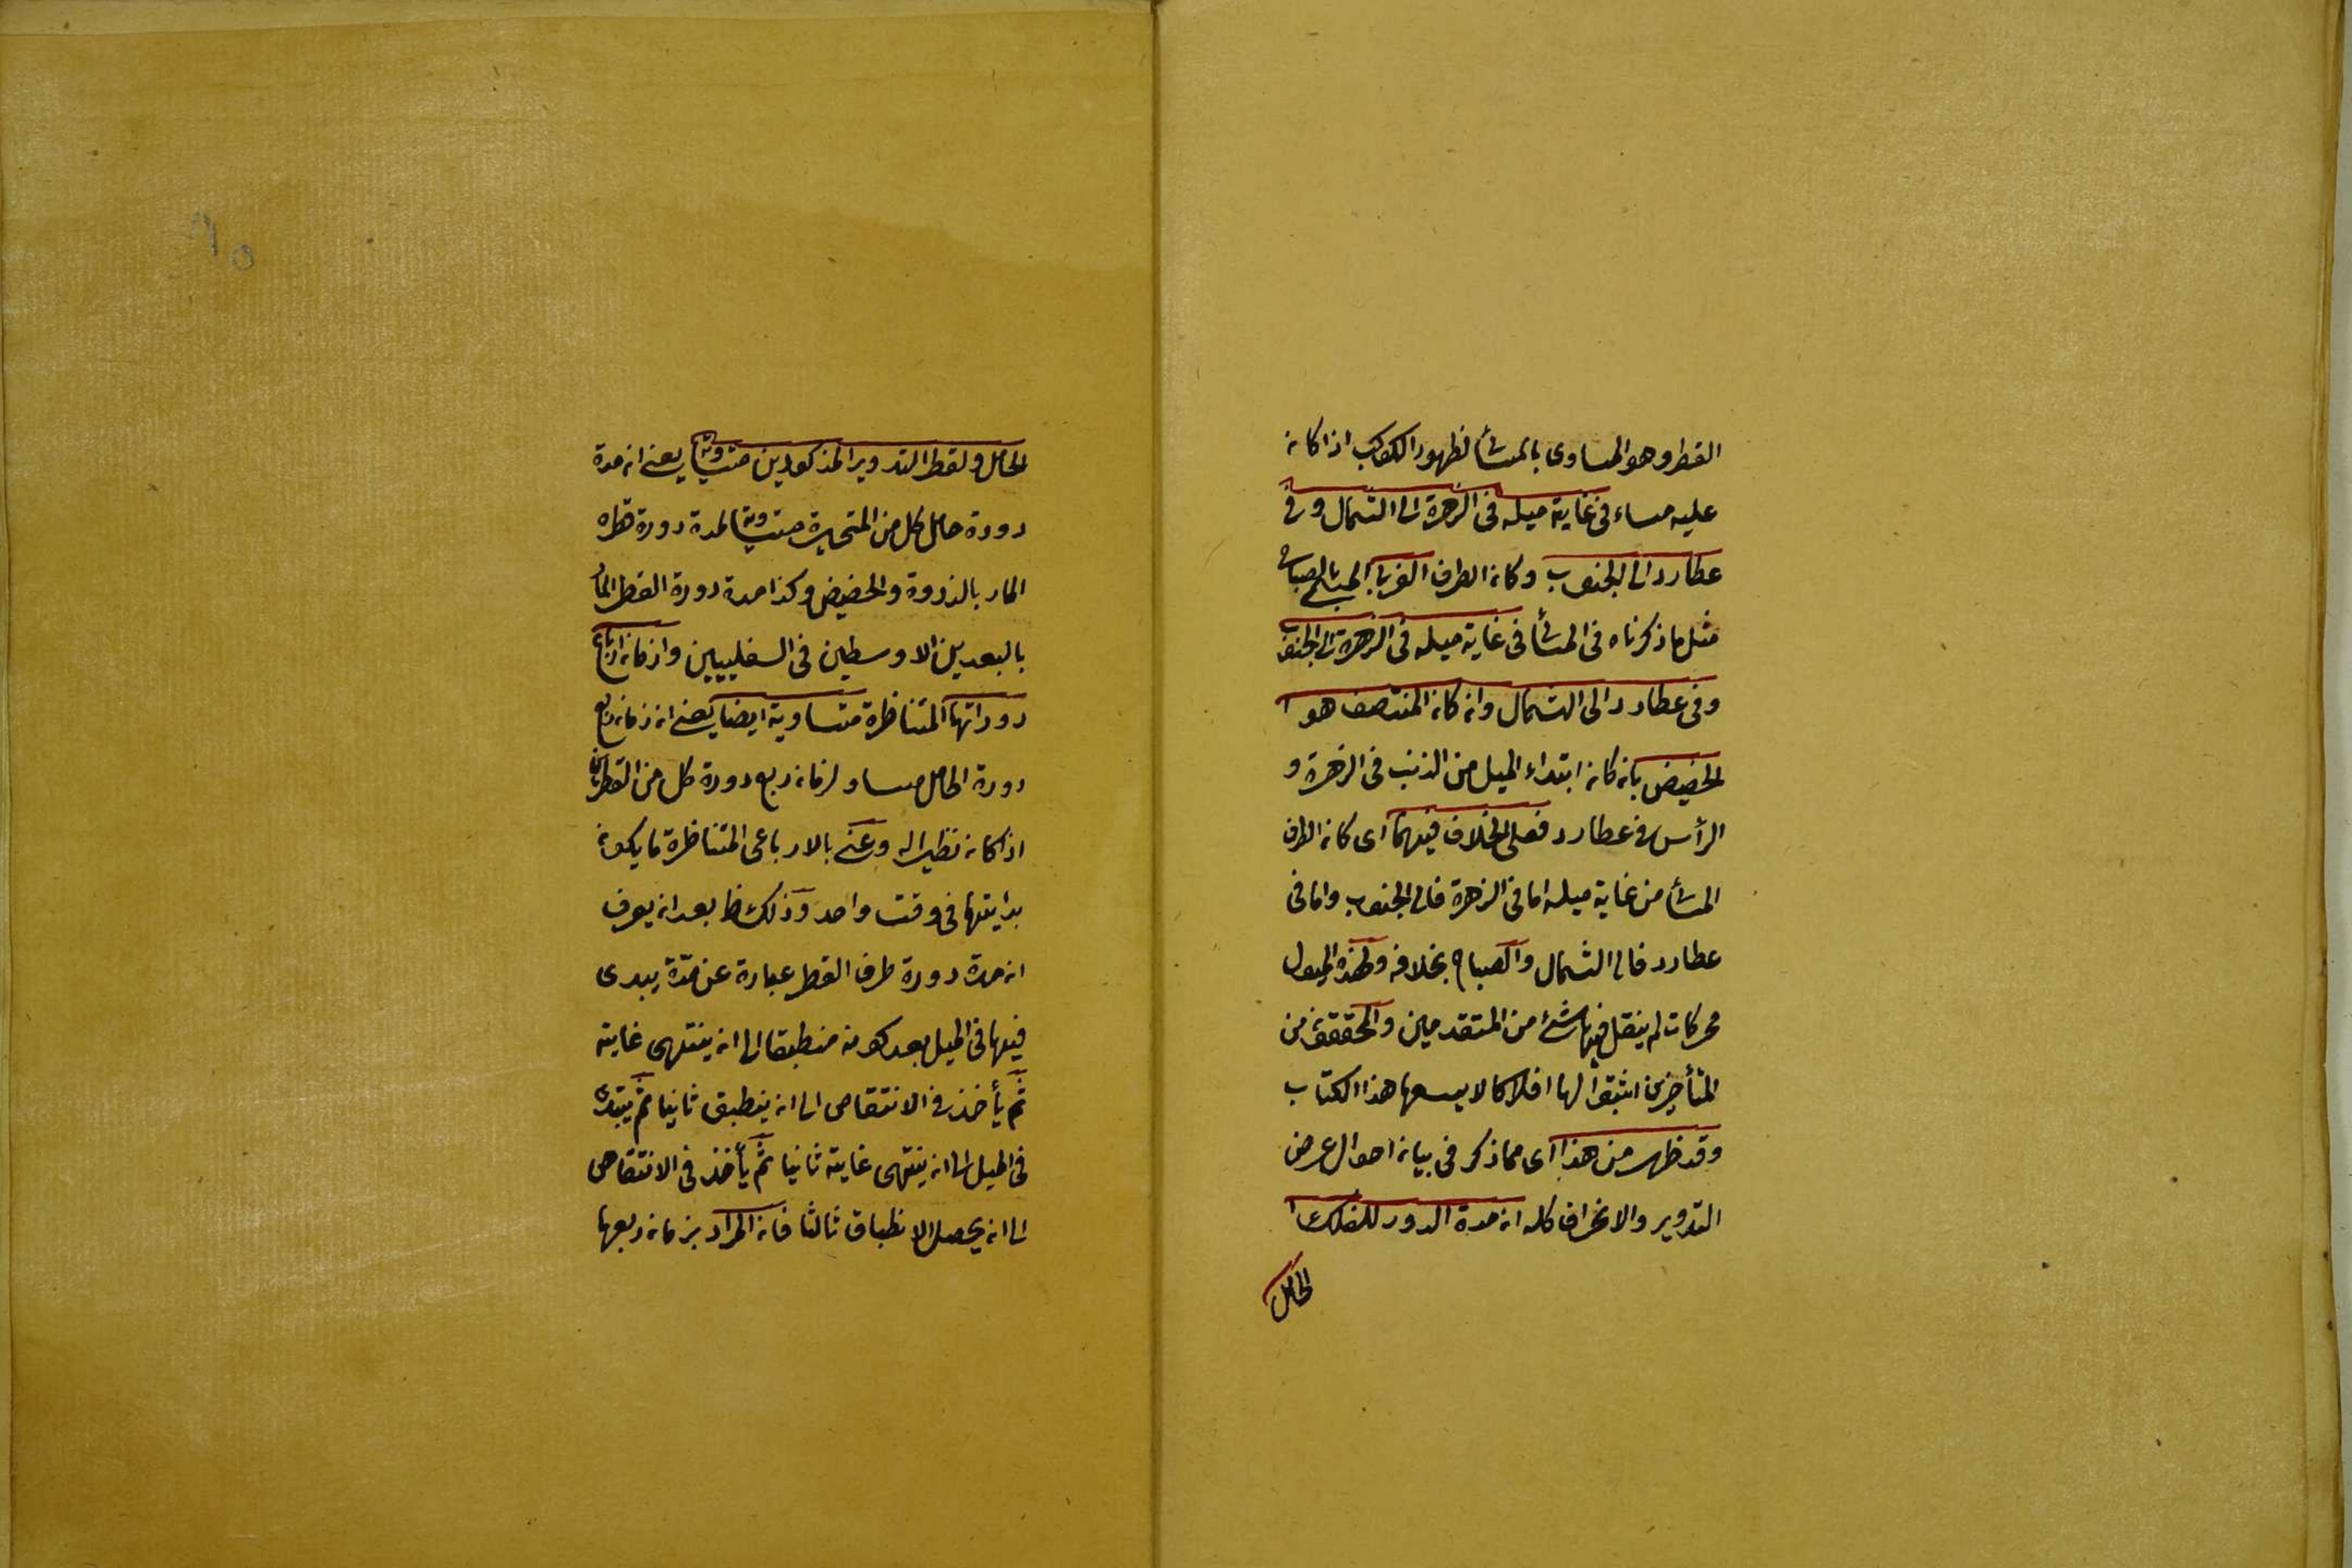 القطر وهو المساوى بالمسائى لظهور الكوكب اذا كان
عليه مساء فى غاية ميله فى الزهرة الى الشمال وفى
عطارد الى الجنوب وكان الطرف الغربى المسمى بالصباحى
مثل ما ذكرناه فى المسائى فى غاية ميله فى الزهرة الى الجنوب
وفى عطارد الى الشمال وان كان المنتصف هو ا
الحضيض بان كان ابتداء الميل من الذنب فى الزهرة و
الرأس فى عطارد فعلى الخلاف فيهما اى كان الطرف
المسائى من غاية ميله اما فى الزهرة فالى الجنوب واما فى
عطارد فالى الشمال والصباحى بخلافه ولهذه الميول
محركات لم ينقل فيها شئ من المتقدمين والمحققون من
المتأخرين اثبتوا لها افلاكا لا يسعها هذا الكتاب
وقد ظهر من هذا اى مما ذكر فى بيان احوال عرض
التدوير والانحراف كله ان مدة الدور للفلك ا
الحامل
الحامل ولقطر التدوير المذكورين متساوية يعنى ان مدة
دورة حامل كل من المتحيرة متساوية لمدة دورة قطره
المار بالذروة والحضيض وكذا مدة دورة القطر المار
بالبعدين الاوسطين فى السفليين وازمان ارباع
دوراتها المتناظرة متساوية ايضا يعنى ان زمان ربع
دورة الحامل مساو لزمان ربع دورة كل من القطرين
اذا كان نظيرا له وعنى بالارباع المتناظرة ما يكون
بدايتها فى وقت واحد وذلك ظ بعد ان يعرف
ان مدة دورة طرف القطر عبارة عن مدّة يبدى
فيها فى الميل بعد كونه منطبقا الى ان ينتهى غايته
ثم يأخذ فى الانتقاص الى ان ينطبق ثانيا ثم يبتدئ
فى الميل الى ان ينتهى غايته ثانيا ثم يأخذ فى الانتقاص
الى ان يحصل الانطباق ثالثا فان المراد بزمان ربعها